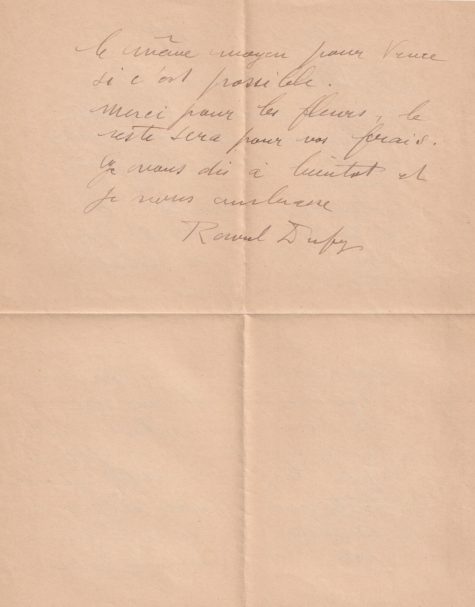 le même moyen pour Vence
si c'est possible.
Merci pour les fleurs, le
reste sera pour vos frais.
Je vous dis à bientot et
je vous embrasse
Raoul Dufy